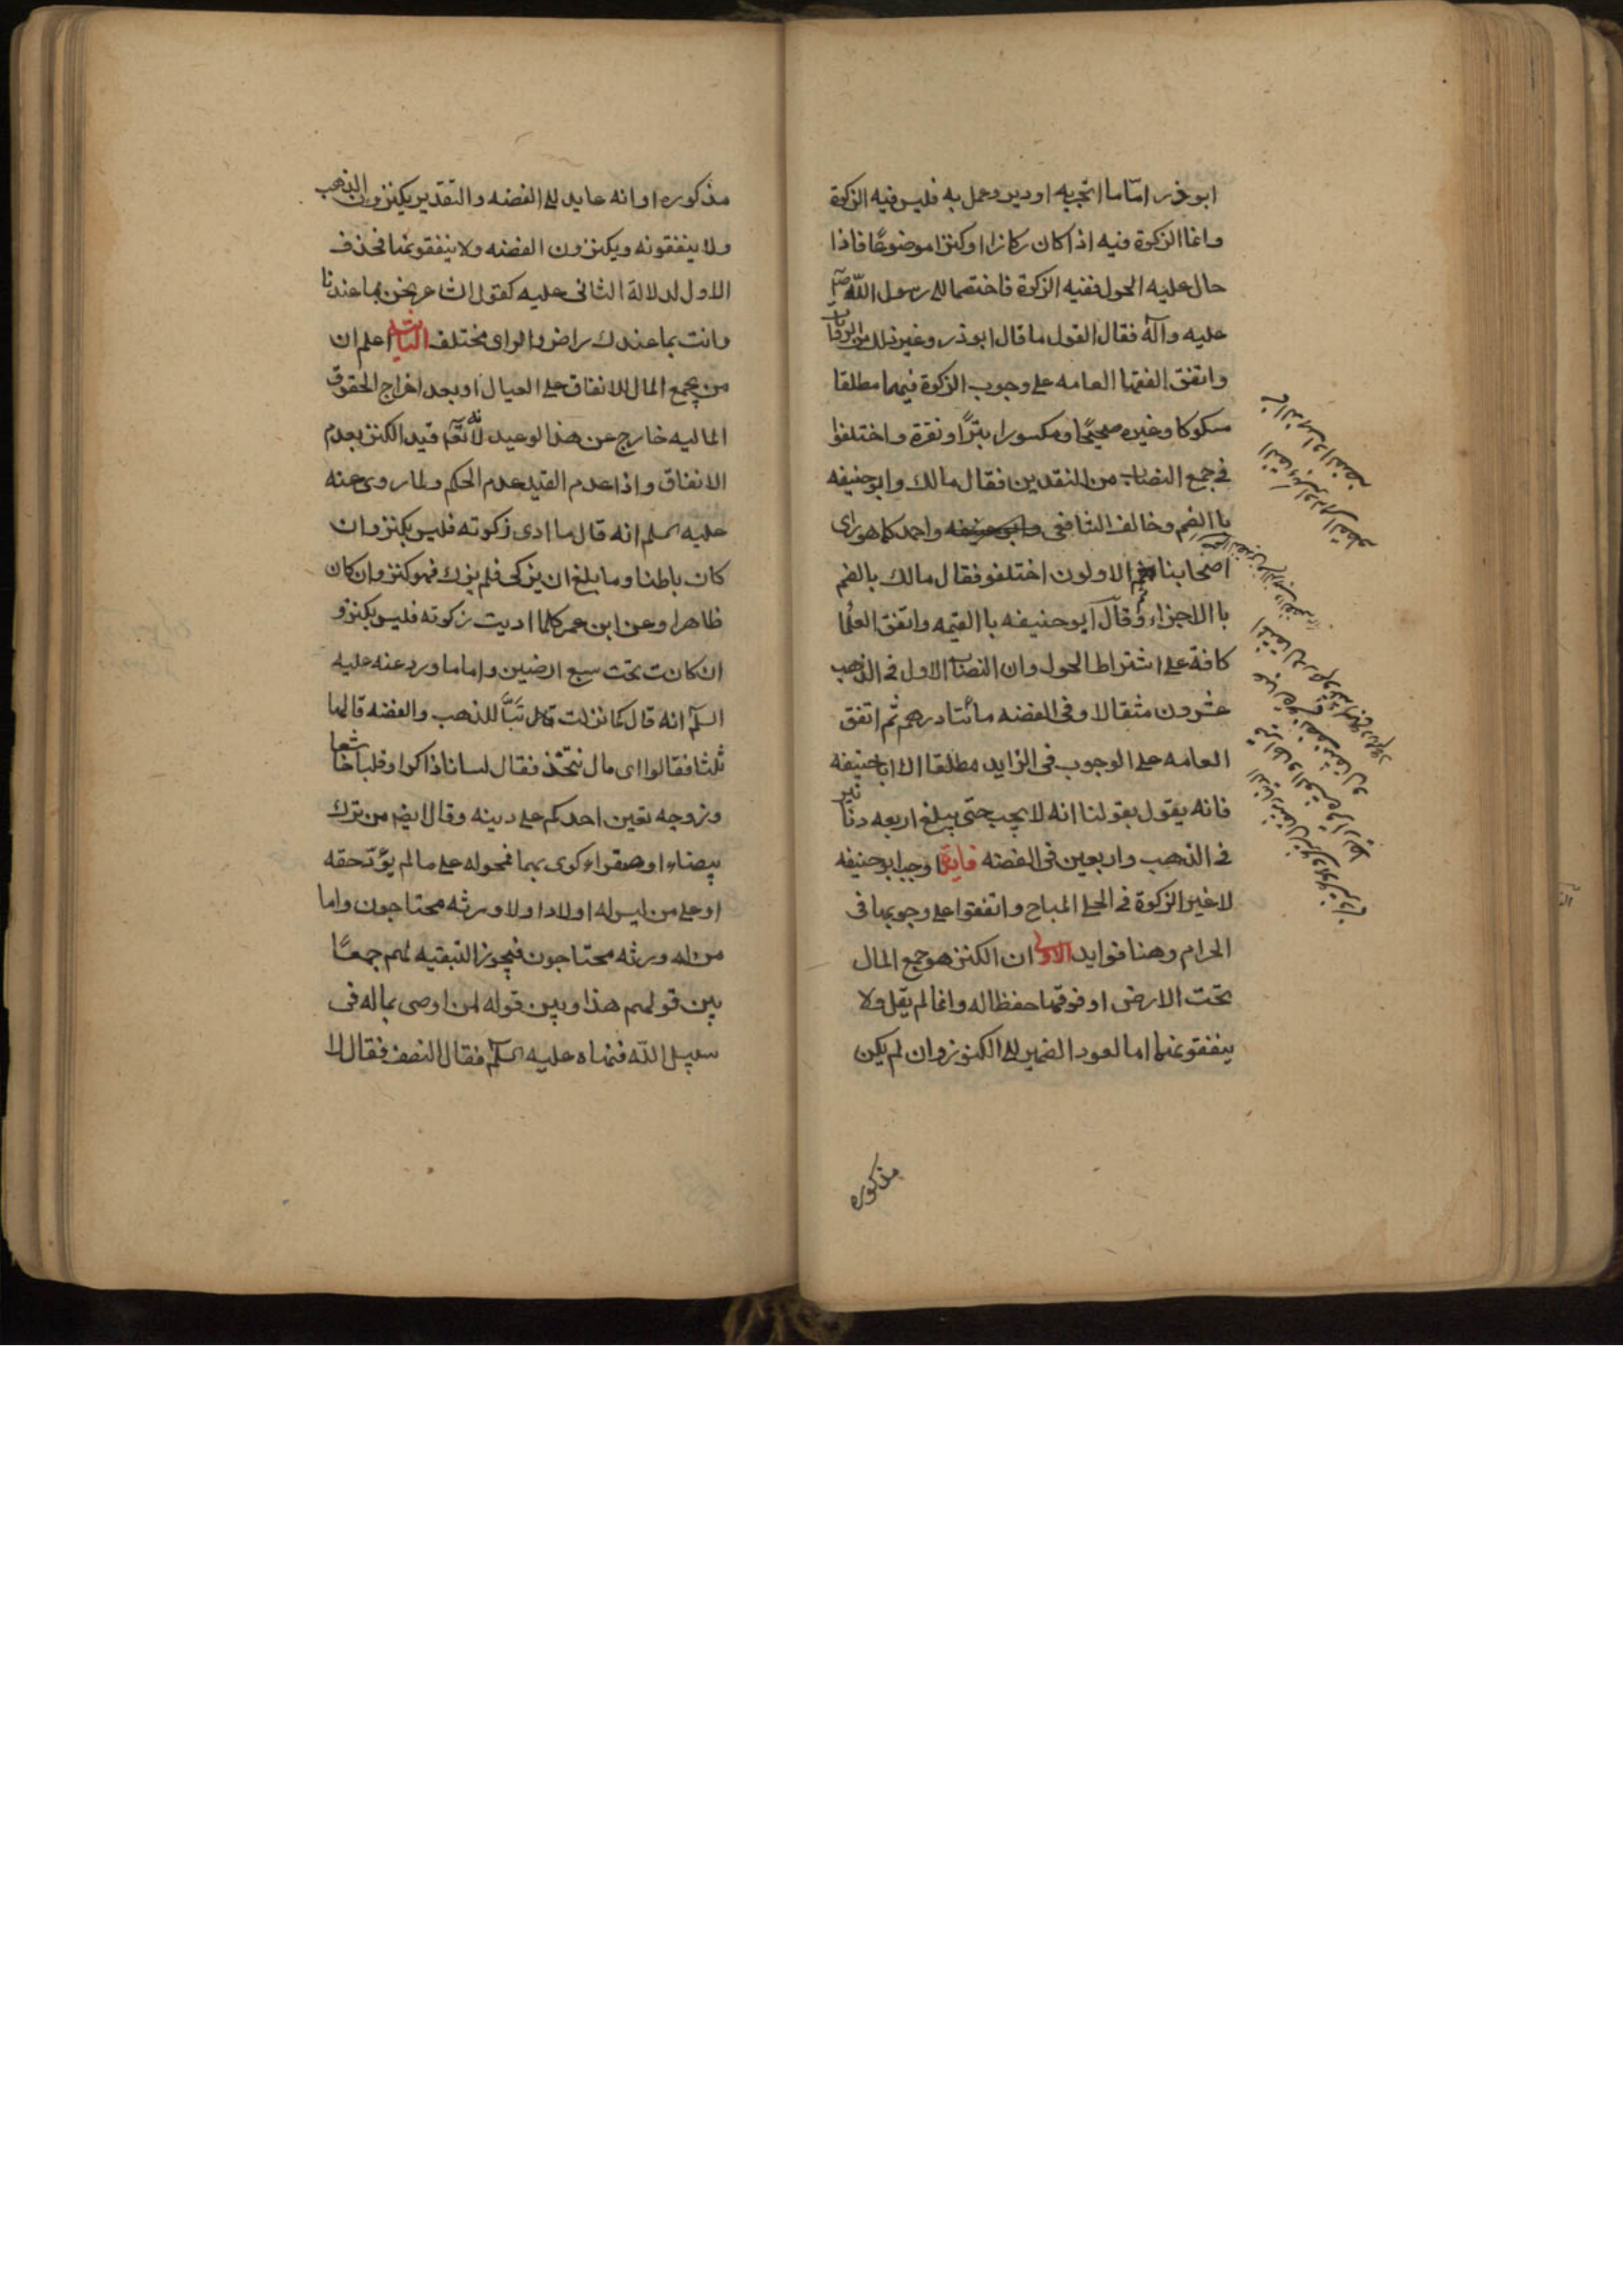 ابوذر امّا ما اتجر به او دير وعمل به فليس فيه الزكوة
وانما الزكوة فيه اذا كان ركازا او كنزا موضوعًا فاذا
حال عليه الحول ففيه الزكوة فاختصما الى رسول الله ص
عليه وآله فقال القول ما قال ابوذر وغير ذلك من الروايات
واتفق الفقها العامه على وجوب الزكوة فيهما مطلقا
مسكوكا وغيره صحيحًا ومكسورا تبرًا ونقرة واختلفوا
في جمع النصاب من النقدين فقال مالك وابوحنيفه
با الضم وخالف الشافعى وابوحنيفه واحمد كما هو راى
اصحابنا ثم الاولون اختلفو فقال مالك بالضم
با الاجزاء وقال ابو حنيفه با القيمه واتفق العلما
كافة على اشتراط الحول وان النصاب الاول في الذهب
عشرون مثقالا وفى الفضه مأتا درهم ثم اتفق
العامه على الوجوب فى الزايد مطلقا الا ابا حنيفه
فانه يقول بقولنا انه لا يجب حتى يبلغ اربعه دنانير
في الذهب واربعين فى الفضه فايدة اوجب ابوحنيفه
لا غير الزكوة في الحلى المباح واتفقوا على وجوبها فى
الحرام وهنا فوايد الاولى ان الكنز هو جمع المال
تحت الارض او فوقها حفظا له وانما لم يقل ولا
ينفقونهما اما لعود الضمير الى الكنوز وان لم يكن
مذكوره
مذكوره او انه عايد الى الفضه والتقدير يكنزون الذهب
ولا ينفقونه ويكنزون الفضه ولا ينفقونها فحذف
الاول لدلالة الثانى عليه كقول الشاعر نحن بما عندنا
وانت بما عندك راض والراى مختلف الثانيه اعلم ان
من يجمع المال للانفاق على العيال او بعد اخراج الحقوق
الماليه خارج عن هذا لوعيد لانه تعم قيد الكنز بعدم
الانفاق واذا عدم القيد عدم الحكم ولما روى عنه
عليه السلم انه قال ما ادى زكوته فليس بكنز وان
كان باطنا وما بلغ ان يزكى فلم يزك فهو كنز وان كان
ظاهرا وعن ابن عمر كلما اديت زكوته فليس بكنز و
ان كانت تحت سبع ارضين واما ما ورد عنه عليه
السلم انه قال لما نزلت قال تَبًّا للذهب والفضه قالها
ثلثا فقالوا اى مال نتخذ فقال لسانا ذاكرا وقلبا خاشعا
وزوجه تعين احدكم على دينه وقال ايضم من ترك
بيضاء او صفراء كوى بهما فمحوله على ما لم يؤد حقه
او على من ليس له اولاد او لا ورثه محتاجون واما
من له ورثه محتاجون فيجوز التبقيه لهم جمعًا
بين قولهم هذا وبين قوله لمن اوصى بماله فى
سبيل الله فنهاه عليه السلم فقال النصف فقال لا